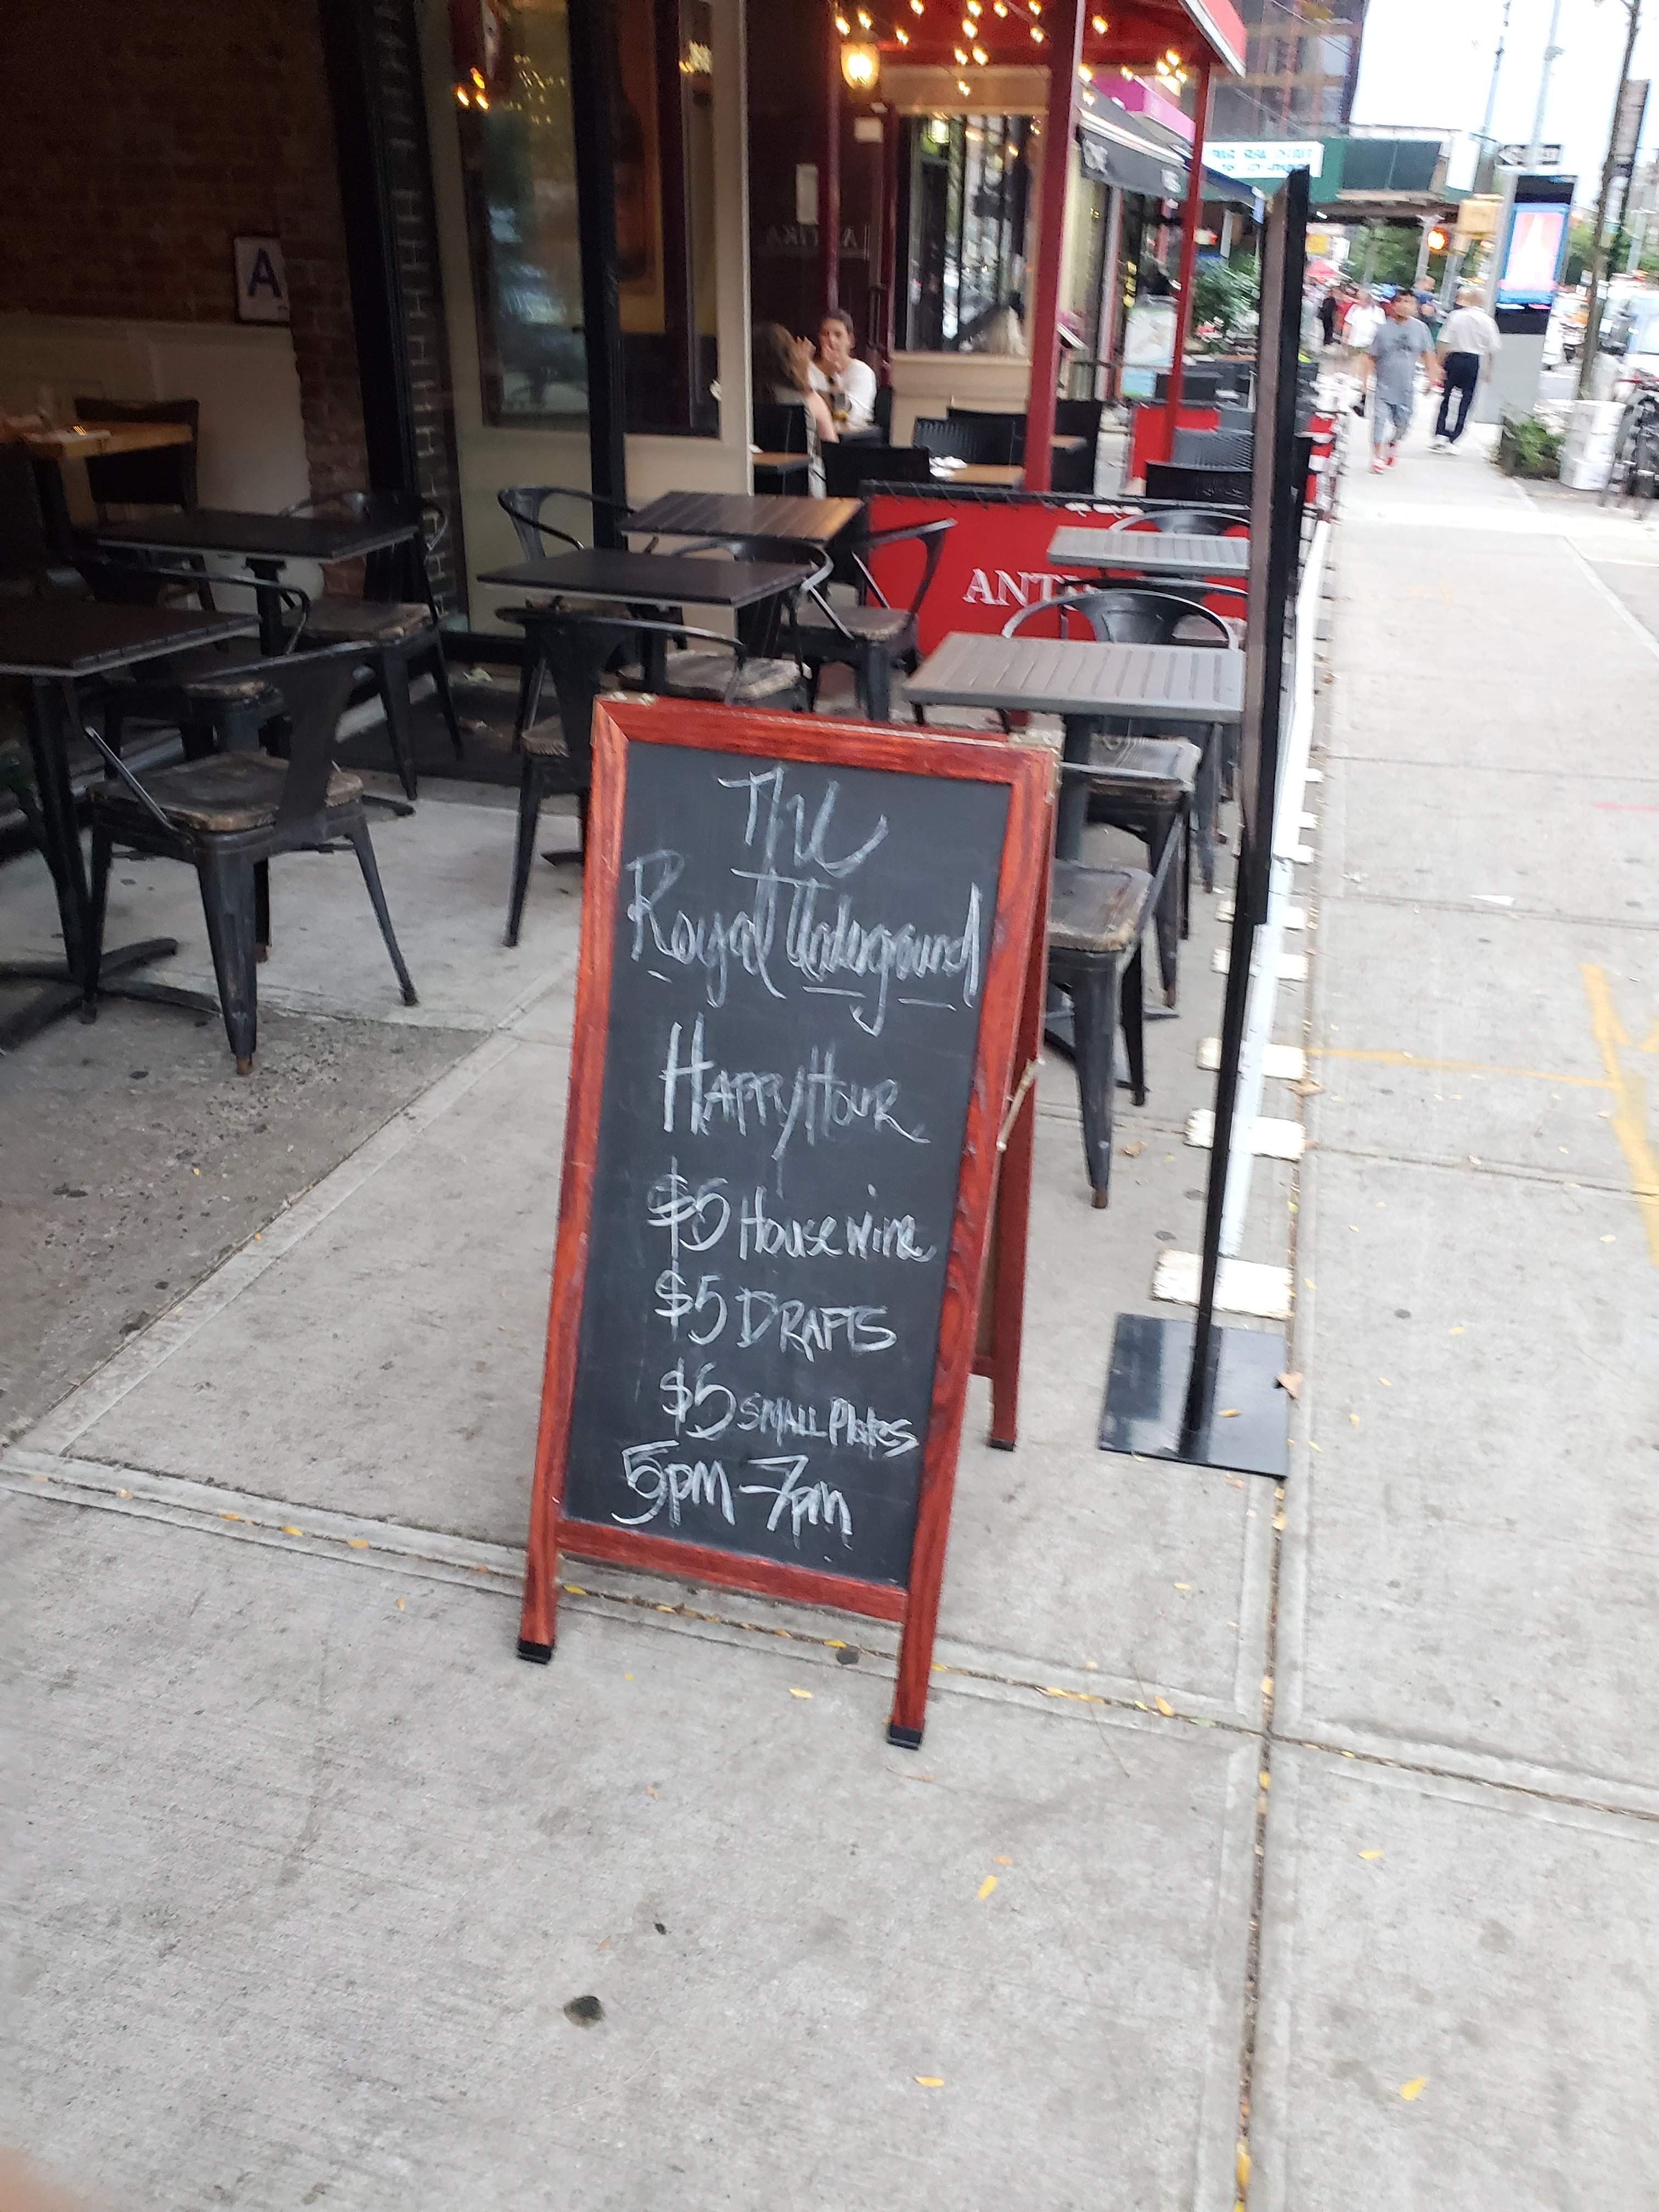 A
ANTIKA
ANTI
The
Royal Underground
HAPPY HOUR
$5 House Wine
$5 DRAFTS
$5 SMALL Plates
5pm - 7pm